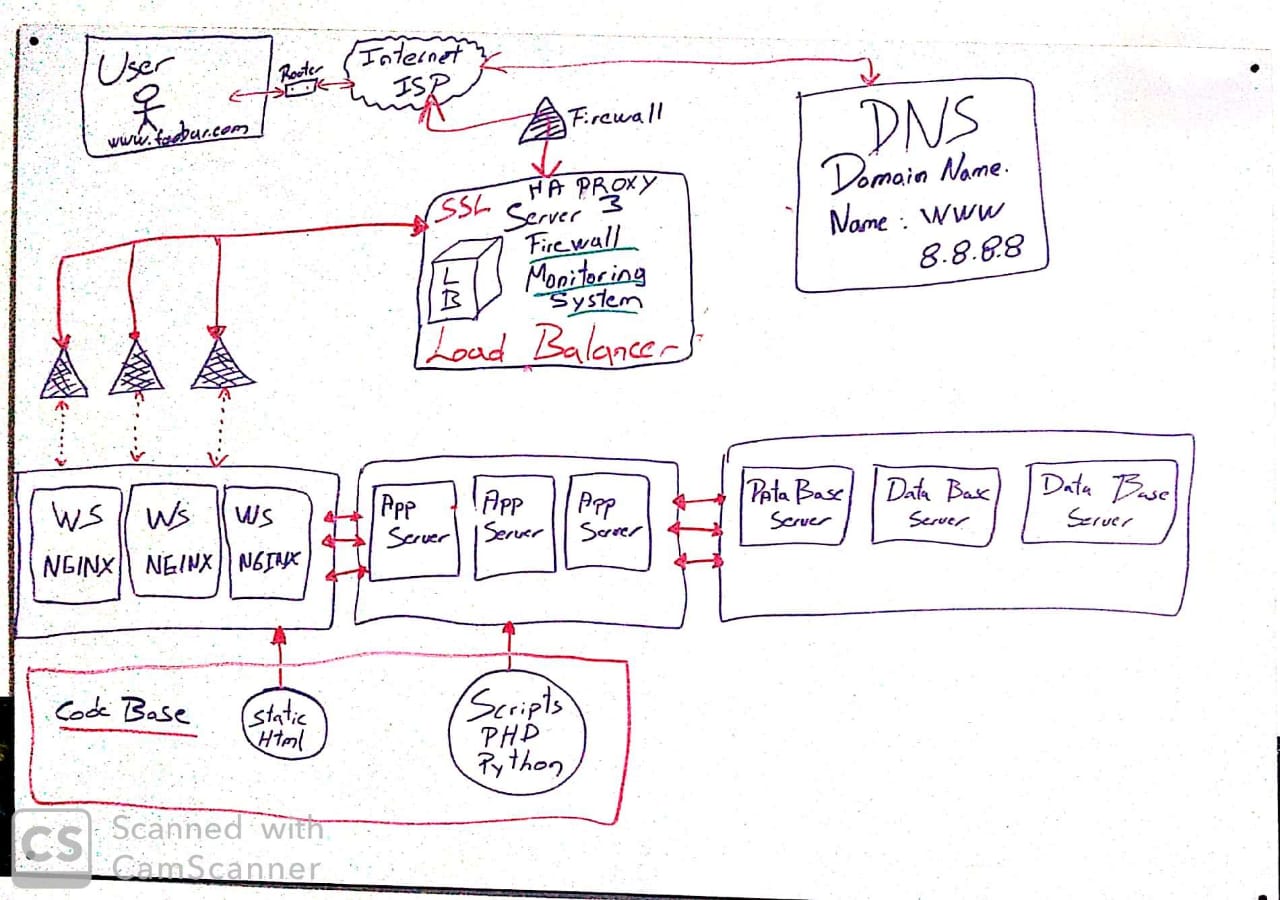 User
www.foobar.com
Router
Internet
ISP
Firewall
DNS
Domain Name.
Name : WWW
8.8.8.8
SSL
HA PROXY
Server 3
Firewall
Monitoring
System
L
B
Load Balancer
WS
NGINX
WS
NGINX
WS
NGINX
App
Server
App
Server
App
Server
Data Base
Server
Data Base
Server
Data Base
Server
Code Base
Static
Html
Scripts
PHD
Python
CS
Scanned with
CamScanner